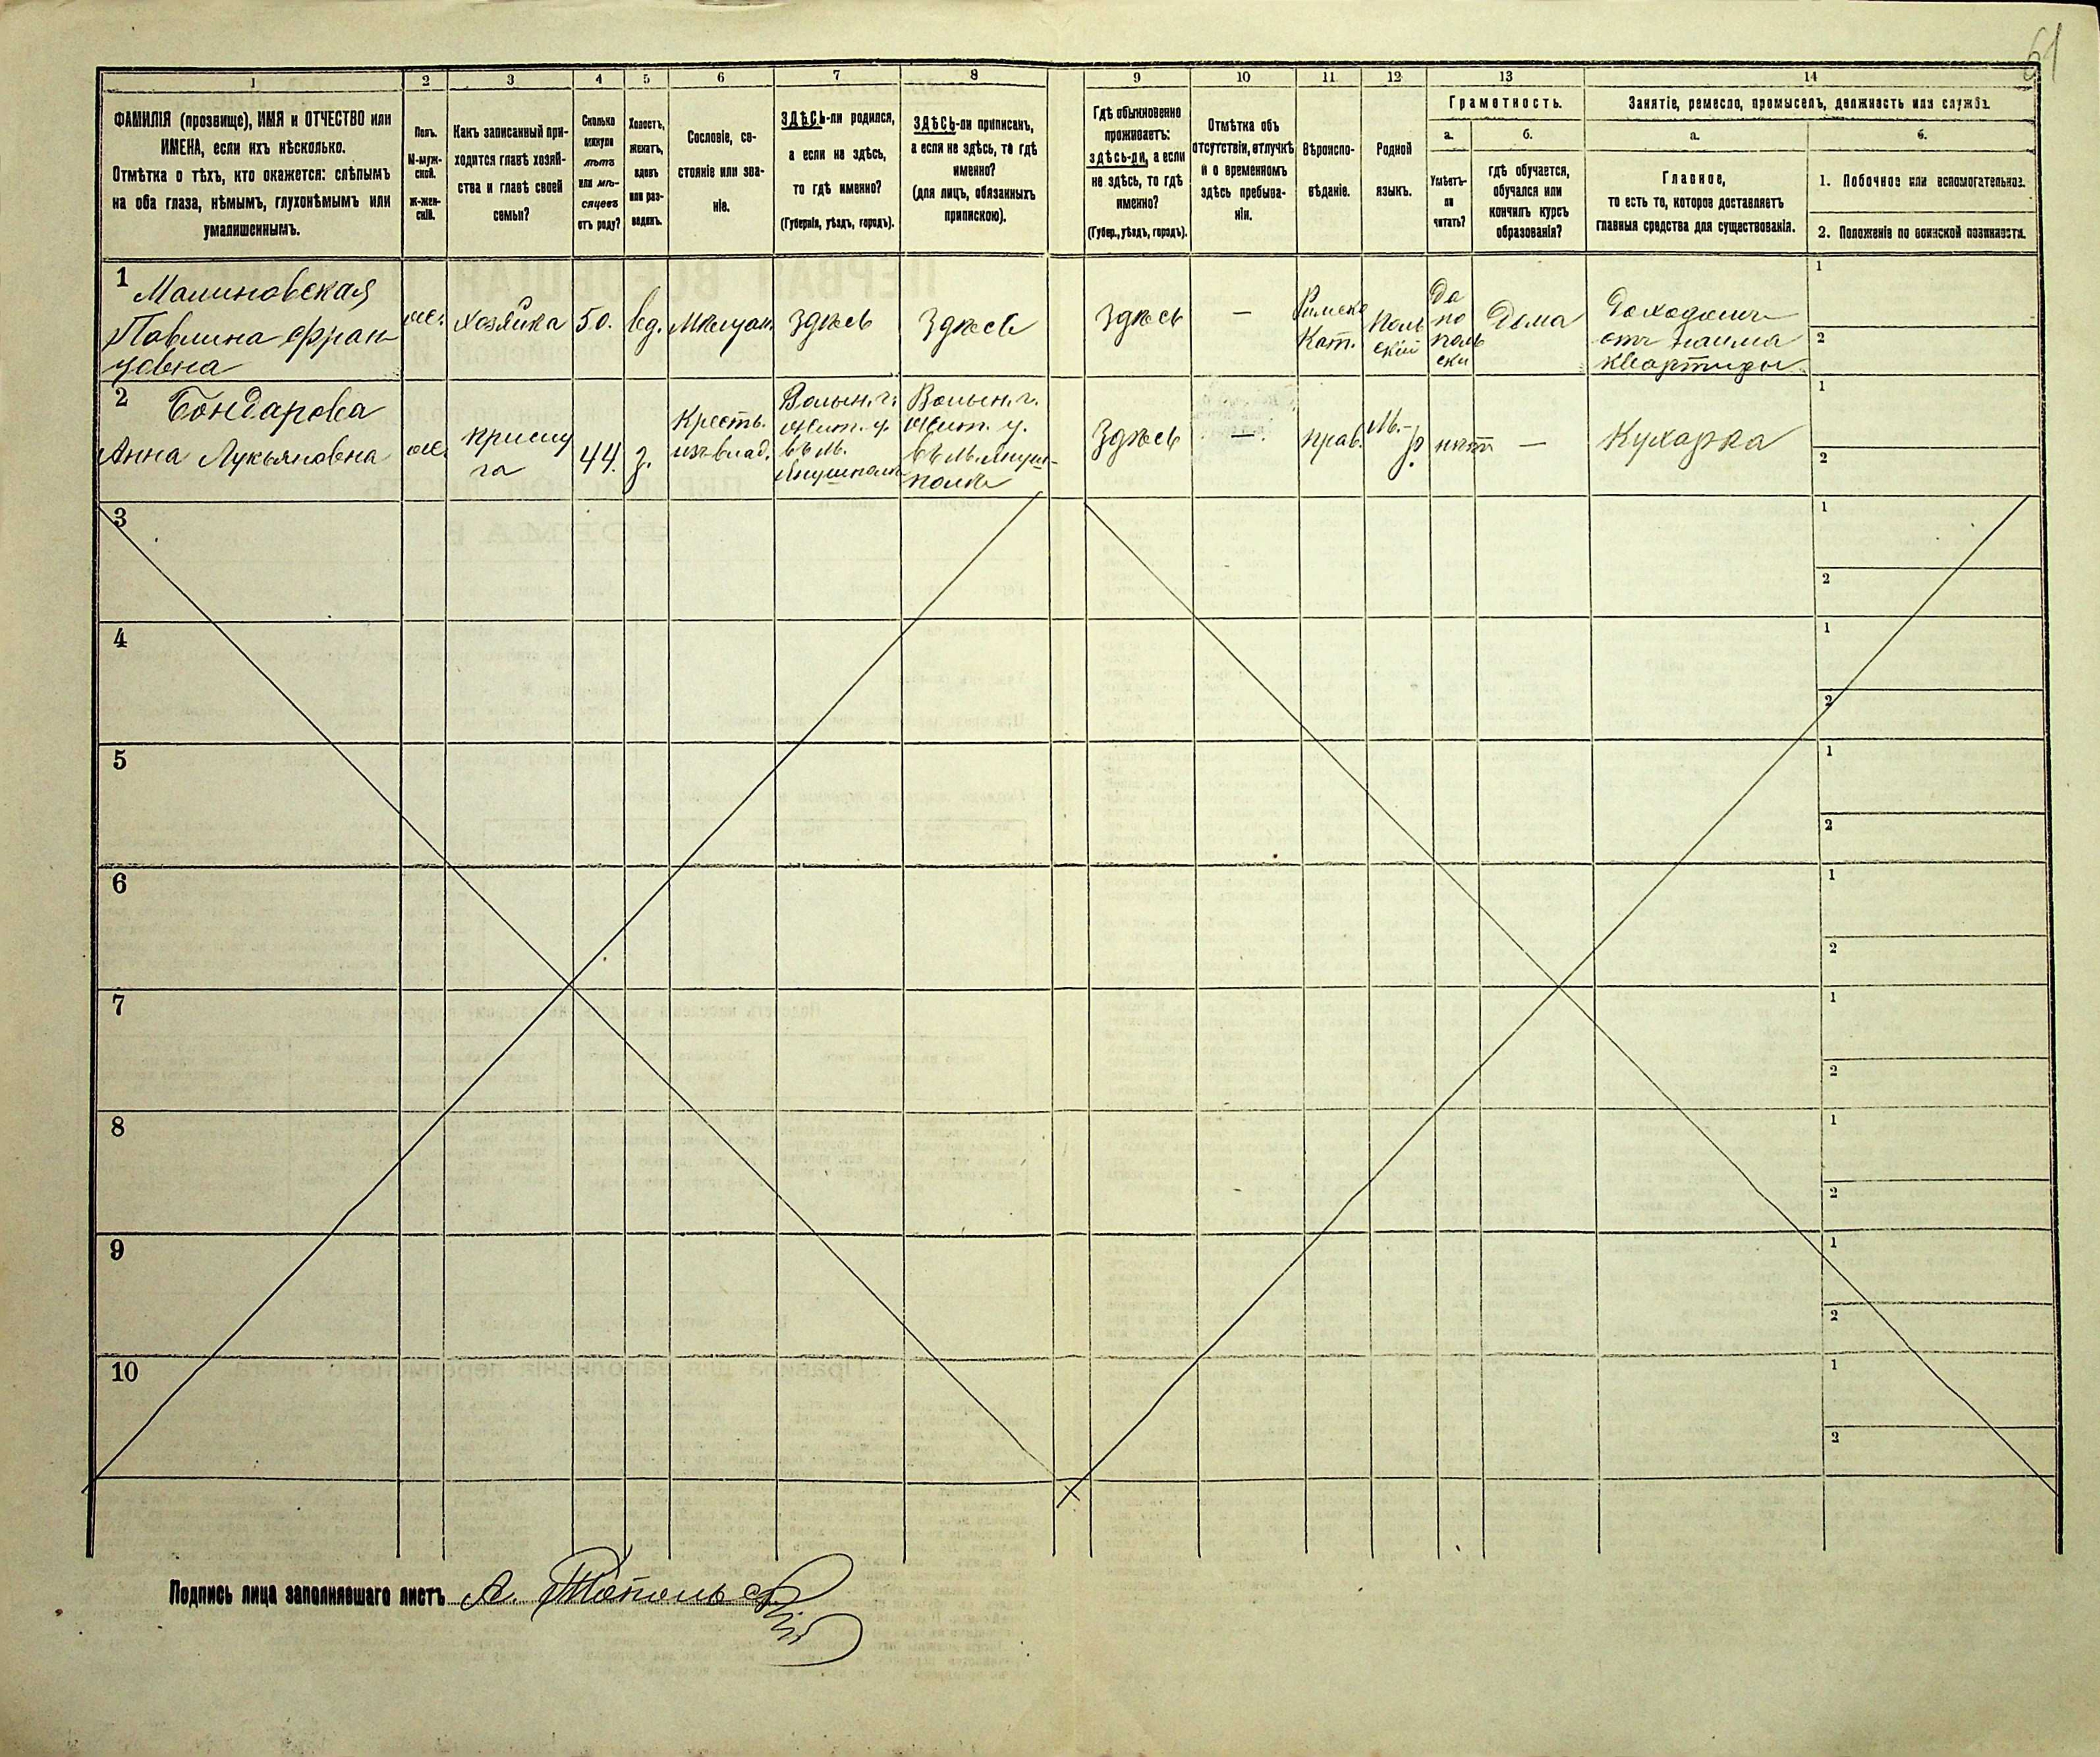 61
1
2
3
4
5
6
7
8
9
10
11
12
13
14
ФАМИЛІЯ (прозвище), ИМЯ и ОТЧЕСТВО или
ИМЕНА, если ихъ нѣсколько.
Отмѣтка о тѣхъ, кто окажется: слѣпымъ
на оба глаза, нѣмымъ, глухонѣмымъ или
умалишеннымъ.
Полъ.
М-муж-
ской.
ж-жен-
скій.
Какъ записанный при-
ходится главѣ хозяй-
ства и главѣ своей
семьи?
Сколько
минуло
лѣтъ
или мѣ-
сяцевъ
отъ роду?
Холостъ,
женатъ,
вдовъ
или раз-
веденъ.
Сословіе, со-
стояніе или зва-
ніе.
ЗДѢСЬ-ли родился,
а если не здѣсь,
то гдѣ именно?
(Губернія, уѣздъ, городъ).
ЗДѢСЬ-ли приписанъ,
а если не здѣсь, то гдѣ
именно?
(для лицъ, обязанныхъ
припискою).
Гдѣ обыкновенно
проживаетъ:
здѣсь-ли, а если
не здѣсь, то гдѣ
именно?
(Губер., уѣздъ, городъ).
Отмѣтка объ
отсутствіи, отлучкѣ
и о временномъ
здѣсь пребыва-
ніи.
Вѣроиспо-
вѣданіе.
Родной
языкъ.
Грамотность.
а.
Умѣетъ-
ли
читать?
б.
гдѣ обучается,
обучался или
кончилъ курсъ
образованія?
Занятіе, ремесло, промыселъ, должность или служба.
а.
Главное,
то есть то, которое доставляетъ
главныя средства для существованія.
б.
1. Побочное или вспомогательное.
2. Положеніе по воинской повинности.
1
Малиновская
Павлина Фран
цовна
же.
хозяйка
50.
вд.
Мѣщан.
Здѣсь
Здѣсь
Здѣсь
—
Римско
Кат.
Поль
скій
Да
по
поль
ски
Дома
Доходомъ
отъ найма
квартиры
1
2
2
Бондарова
Анна Лукьяновна
же.
прислу
га
44.
з.
Крестъ.
изъ влад.
Волын. г.
Жит. у.
въ м.
Янушполь
Волын. г.
Жит. у.
въ м. Януш-
поль
Здѣсь
—.
прав.
М.-
р.
нѣтъ
—
Кухарка
1
2
3
1
2
4
1
2
5
1
2
6
1
2
7
1
2
8
1
2
9
1
2
10
1
2
Подпись лица заполнявшаго листъ А.